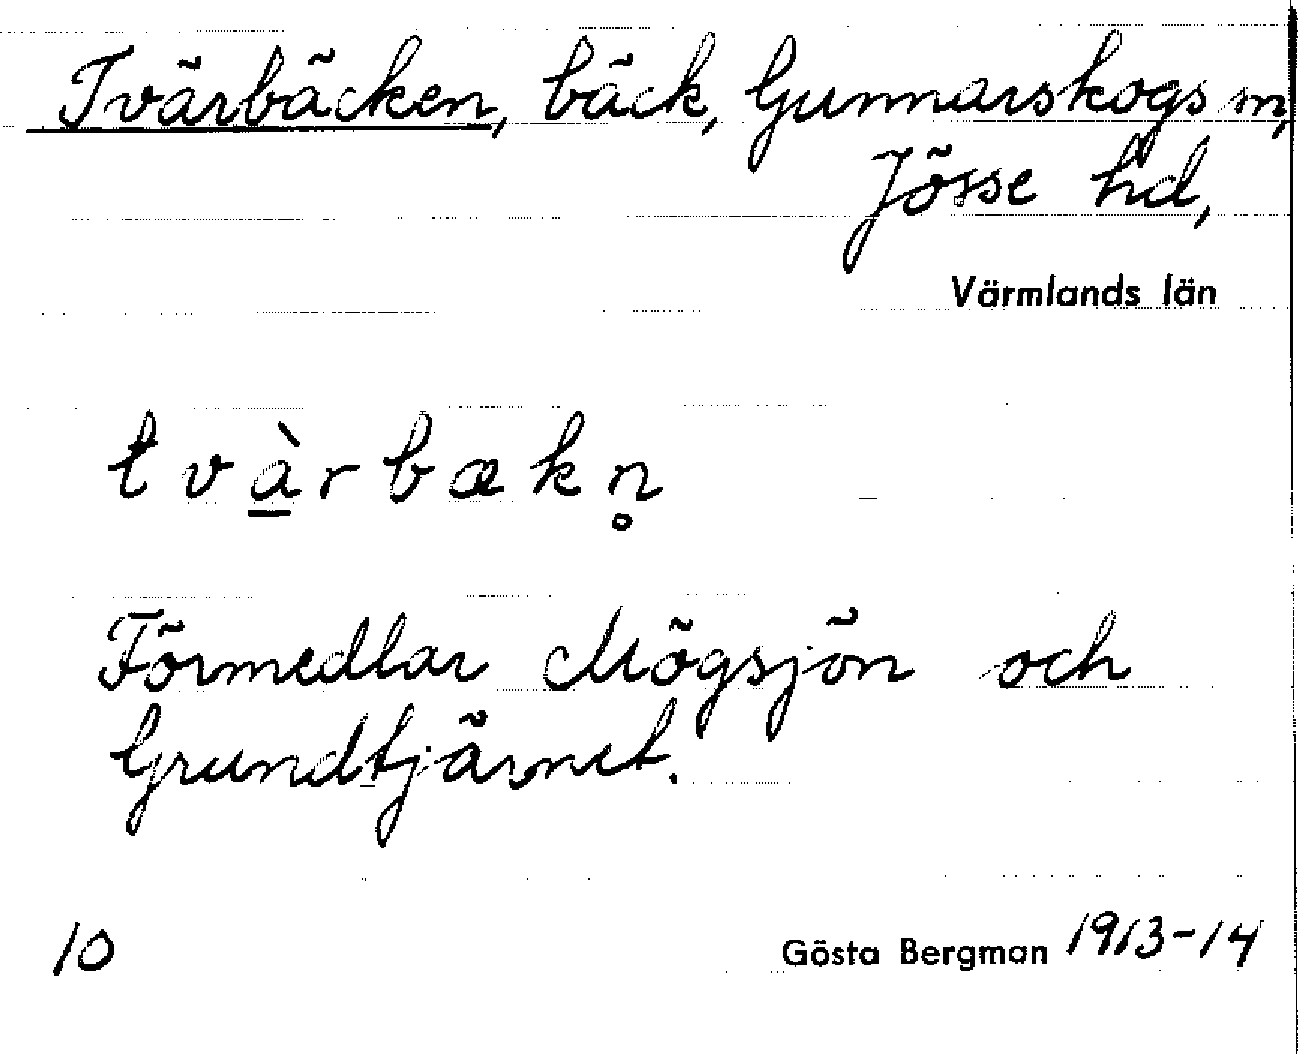 Tvärbäcken, bäck, Gunnarskogs sn,
Jösse hd,
Värmlands län
tvà̱rbækn̥
Förmedlar Mögsjön och
Grundtjärnet.
10
Gösta Bergman 1913-14